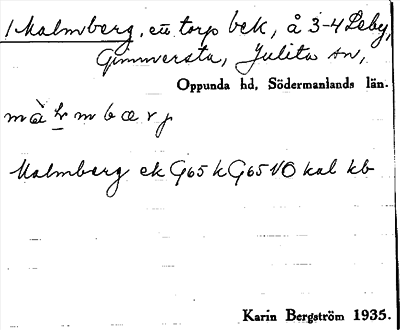 1 Malmberg, en torp bek, å 3-4 Leby,
Gimmersta, Julita sn,
Oppunda hd, Södermanlands län.
Malmberg ek G65 k G65 NO kal kb
Karin Bergström 1935.